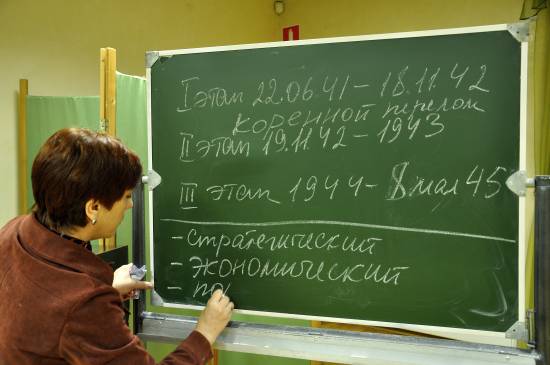 I этап 22.06.41 – 18.11.42
коренной перелом
II этап 19.11.42 – 1943
III этап 1944 – 8 мая 45
– стратегический
– экономический
– по